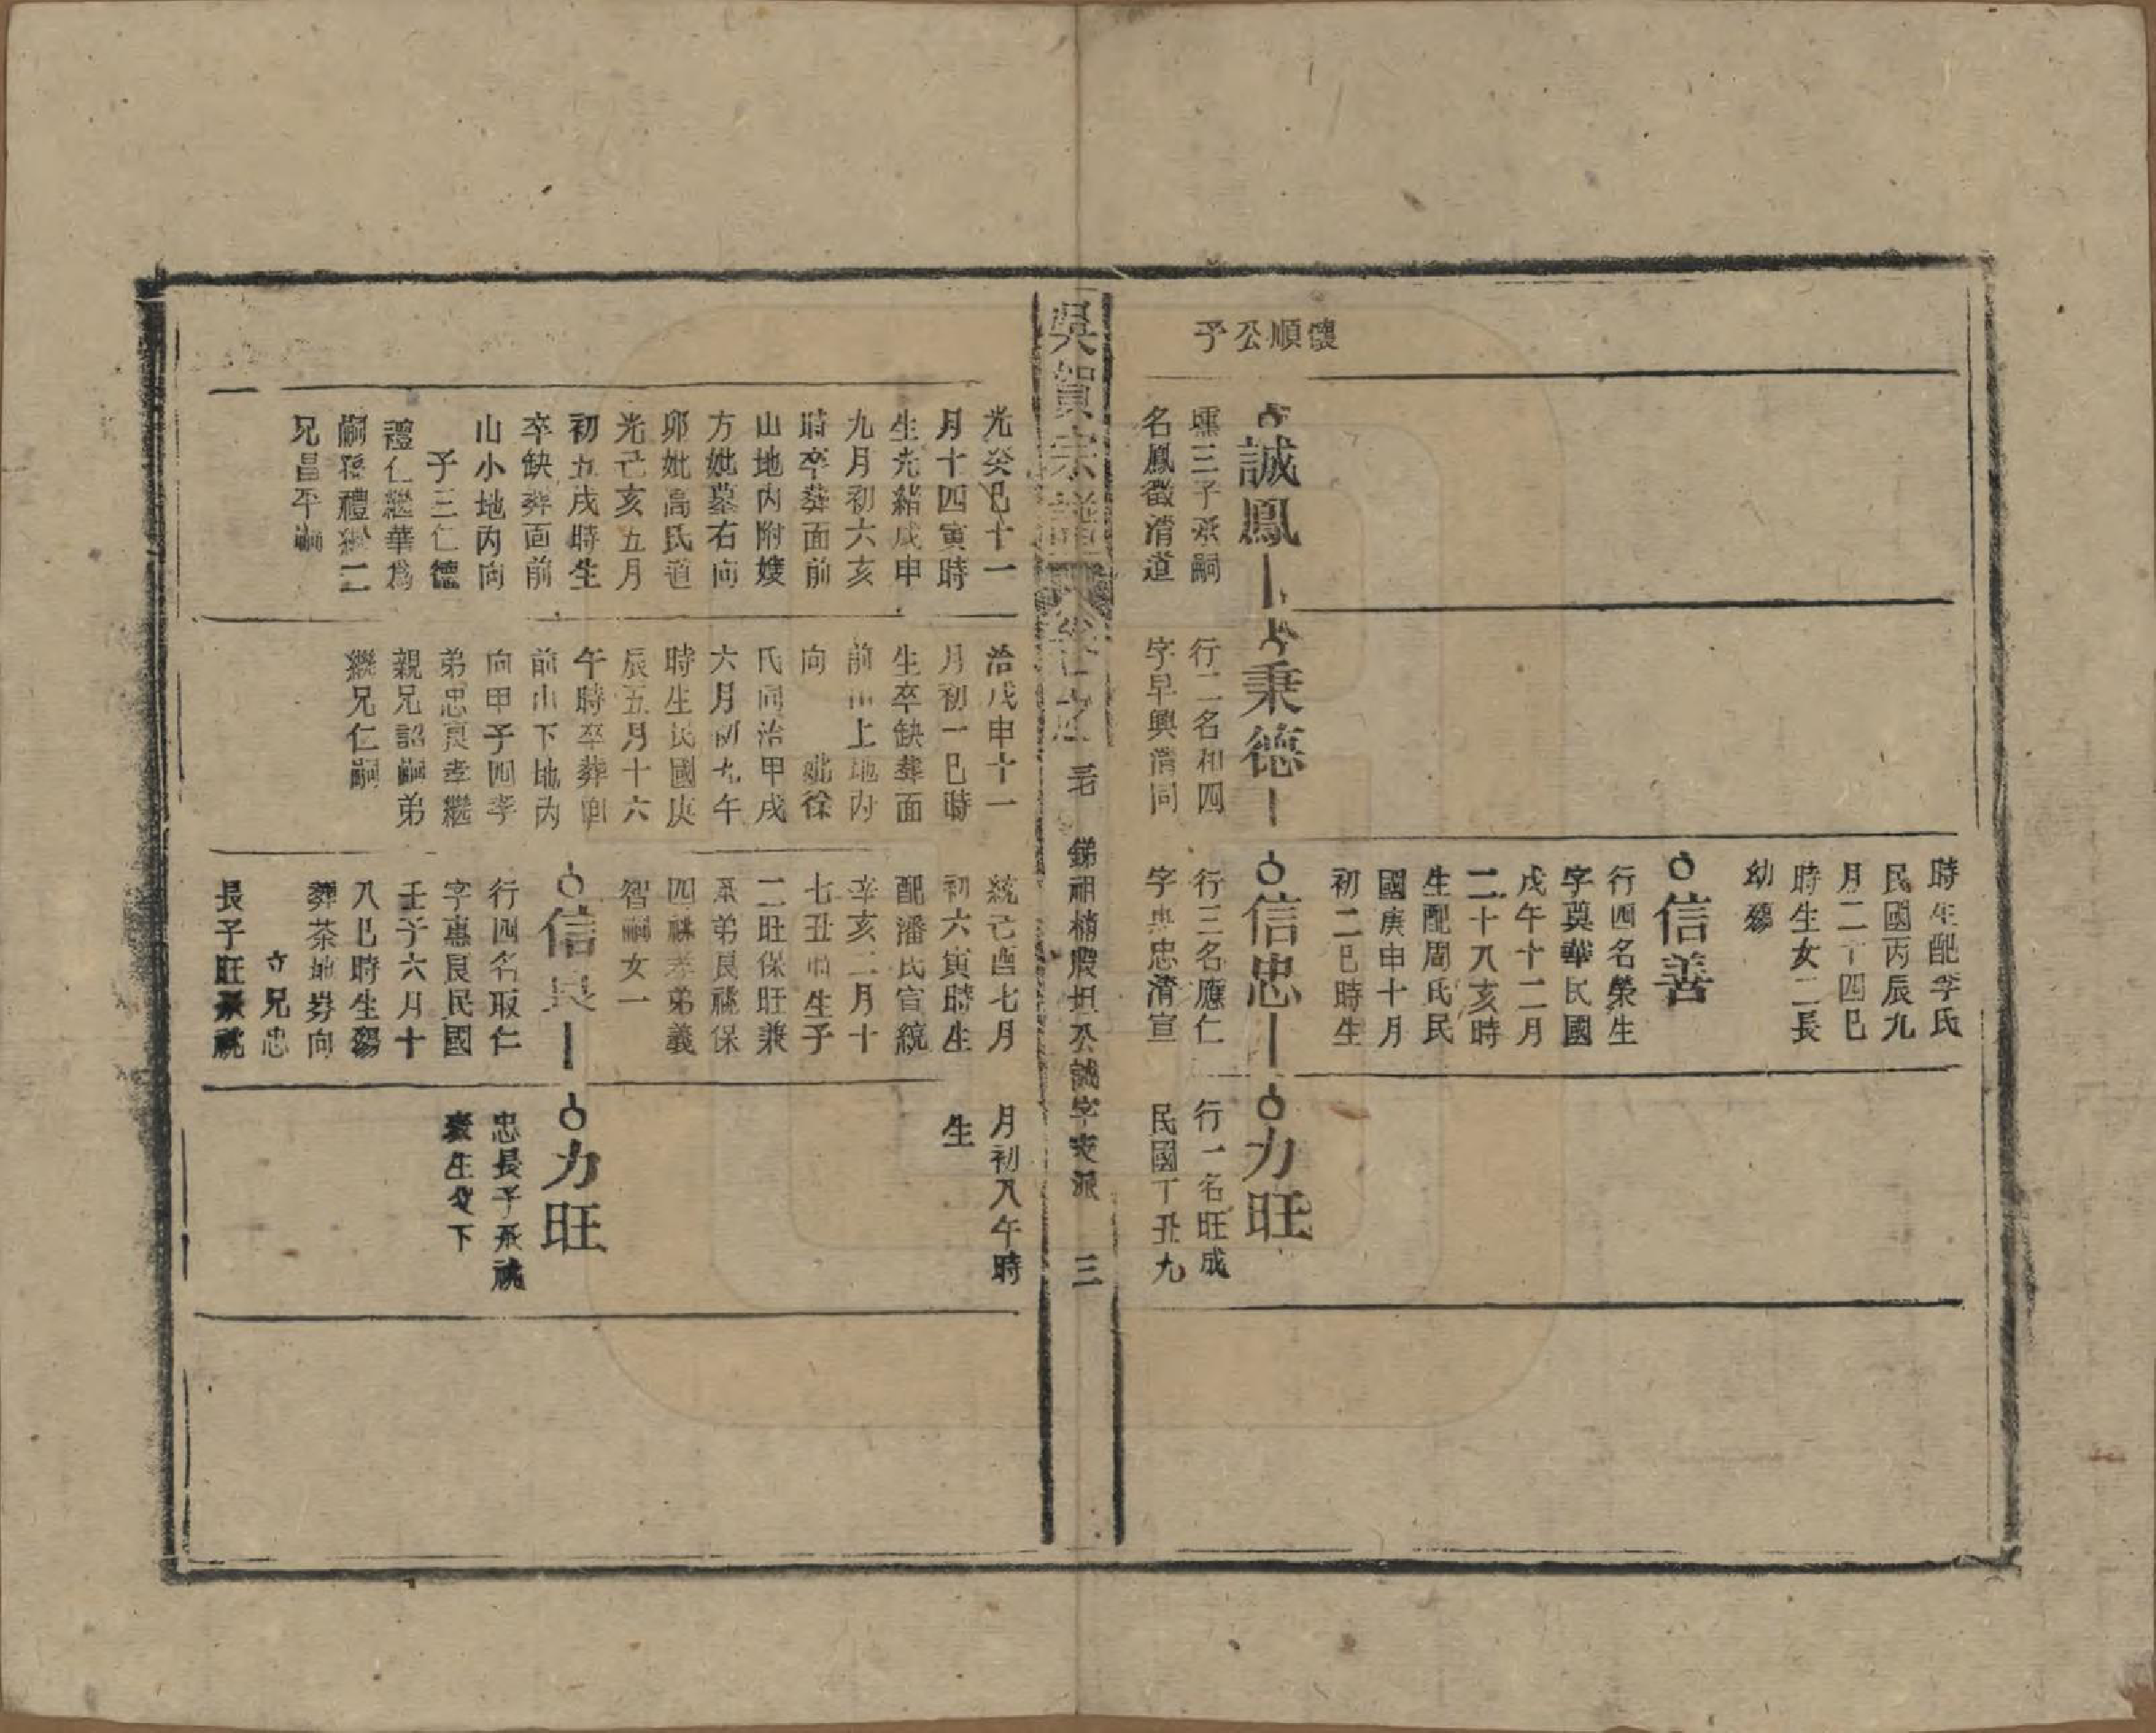 懷順公子
時生配李氏
民國丙辰九
月二十四巳
時生女二長
幼殤
信善
行四名榮生
字奠華民國
戊午十二月
二十八亥時
生配周氏民
國庚申十月
初二巳時生
誠鳳
秉德
信忠
力旺
三子承嗣
名鳳徵清道
行二名和四
字早興清同
行三名應仁
字典忠清宣
行一名旺成
民國丁丑九
吳賀宗譜
卷 之
公誠字支派
三
光癸巳十一
月十四寅時
生光緒戊申
九月初六亥
時卒葬面前
山地内附嫂
方妣墓右向
卯妣高氏道
光己亥五月
初五戌時生
卒缺葬面前
山小地丙向
子三仁德
禮仁繼華為
嗣孫禮繼二
兄昌平嗣
治戊申十一
月初一巳時
生卒缺葬面
前山上地丙
向 妣徐
氏同治甲戌
六月初九午
時生民國庚
辰五月十六
午時卒葬面
前山下地丙
向甲子四孝
弟忠良孝繼
親兄詔嗣弟
繼兄仁嗣
統己酉七月
初六寅時生
配潘氏宣統
辛亥二月十
七丑時生子
二旺保旺兼
承弟良祧保
四祧孝弟義
智嗣女一
信良
力旺
行四名取仁
字惠良民國
壬子六月十
八巳時生殤
葬茶地 向
立兄忠
長子旺承祧
月初八午時
生
忠長子承祧